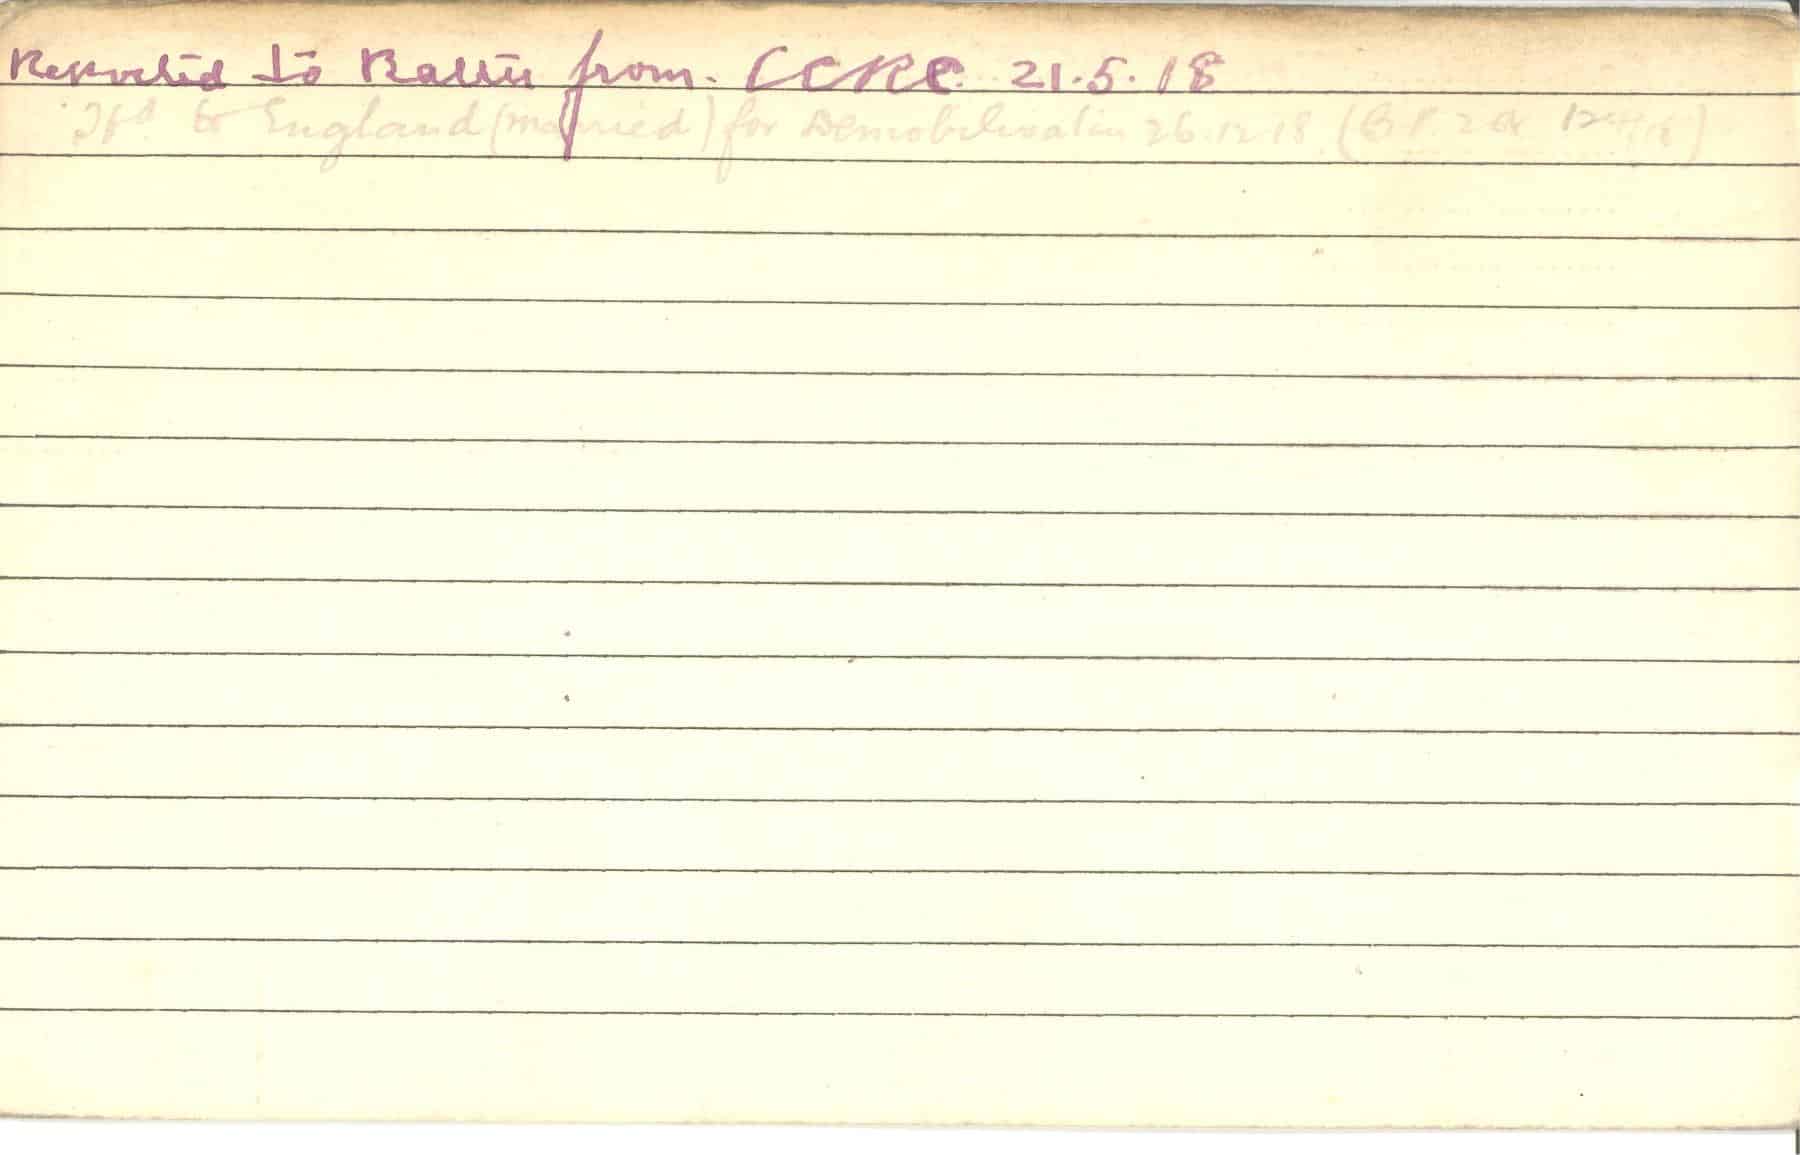 Reported to Battn from. CCRC. 21.5.18
Tfd to England (married) for Demobilization 26.12.18. (